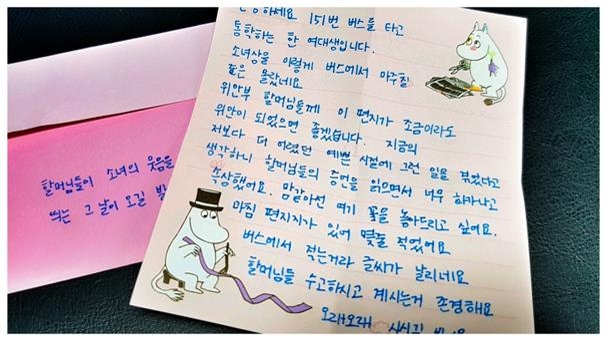 151번 버스를 타고
통학하는 한 여대생입니다.
소녀상을 이렇게 버스에서 마주칠
줄은 몰랐네요
위안부 할머님들께 이 편지가 조금이라도
위안이 되었으면 좋겠습니다. 지금의
저보다 더 어렸던 예쁜 시절에 그런 일을 겪었다고
생각하니 할머님들의 증언을 읽으면서 너무 화나고
속상했어요. 맘같아선 여기 꽃을 놓아드리고 싶어요.
마침 편지지가 있어 몇줄 적었어요
버스에서 적는거라 글씨가 날리네요
할머님들 수고하시고 계시는거 존경해요
오래오래
할머님들이 소녀의 웃음을
띄는 그 날이 오길